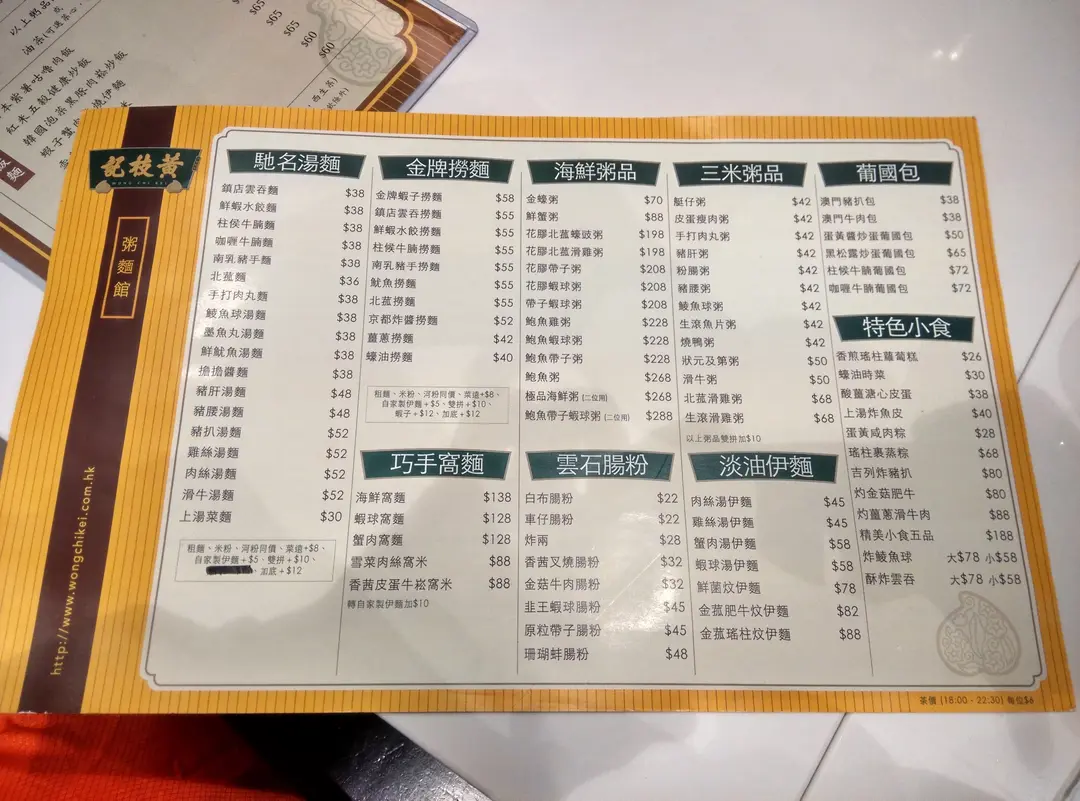 以上粥品
油菜(可選菜心、
本紫薯咕嚕肉飯
紅米五穀健康炒飯
韓國泡菜黑豚肉崧炒飯
$65
$65
$65
$60
$60
黃枝記
WONG CHI KEI
粥麵館
http://www.wongchikei.com.hk
馳名湯麵
鎮店雲吞麵 $38
鮮蝦水餃麵 $38
柱侯牛腩麵 $38
咖喱牛腩麵 $38
南乳豬手麵 $38
北菰麵 $36
手打肉丸麵 $38
鯪魚球湯麵 $38
墨魚丸湯麵 $38
鮮魷魚湯麵 $38
擔擔醬麵 $38
豬肝湯麵 $48
豬腰湯麵 $48
豬扒湯麵 $52
雞絲湯麵 $52
肉絲湯麵 $52
滑牛湯麵 $52
上湯菜麵 $30
粗麵、米粉、河粉同價、菜遠+$8、
自家製伊麵+$5、雙拼+$10、
加底+$12
金牌撈麵
金牌蝦子撈麵 $58
鎮店雲吞撈麵 $55
鮮蝦水餃撈麵 $55
柱候牛腩撈麵 $55
南乳豬手撈麵 $55
魷魚撈麵 $55
北菰撈麵 $55
京都炸醬撈麵 $52
薑蔥撈麵 $42
蠔油撈麵 $40
粗麵、米粉、河粉同價、菜遠+$8、
自家製伊麵+$5、雙拼+$10、
蝦子+$12、加底+$12
巧手窩麵
海鮮窩麵 $138
蝦球窩麵 $128
蟹肉窩麵 $128
雪菜肉絲窩米 $88
香茜皮蛋牛崧窩米 $88
轉自家製伊麵加$10
海鮮粥品
金蠔粥 $70
鮮蟹粥 $88
花膠北菰蠔豉粥 $198
花膠北菰滑雞粥 $198
花膠帶子粥 $208
花膠蝦球粥 $208
帶子蝦球粥 $208
鮑魚雞粥 $228
鮑魚蝦球粥 $228
鮑魚帶子粥 $228
鮑魚粥 $268
極品海鮮粥 (二位用) $268
鮑魚帶子蝦球粥 (二位用) $288
雲石腸粉
白布腸粉 $22
車仔腸粉 $22
炸兩 $28
香茜叉燒腸粉 $32
金菇牛肉腸粉 $32
韭王蝦球腸粉 $45
原粒帶子腸粉 $45
珊瑚蚌腸粉 $48
三米粥品
艇仔粥 $42
皮蛋瘦肉粥 $42
手打肉丸粥 $42
豬肝粥 $42
粉腸粥 $42
豬腰粥 $42
鯪魚球粥 $42
生滾魚片粥 $42
燒鴨粥 $42
狀元及第粥 $50
滑牛粥 $50
北菰滑雞粥 $68
生滾滑雞粥 $68
以上粥品雙拼加$10
淡油伊麵
肉絲湯伊麵 $45
雞絲湯伊麵 $45
蟹肉湯伊麵 $58
蝦球湯伊麵 $58
鮮菌炆伊麵 $78
金菰肥牛炆伊麵 $82
金菰瑤柱炆伊麵 $88
葡國包
澳門豬扒包 $38
澳門牛肉包 $38
蛋黃醬炒蛋葡國包 $50
黑松露炒蛋葡國包 $65
柱候牛腩葡國包 $72
咖喱牛腩葡國包 $72
特色小食
香煎瑤柱蘿蔔糕 $26
蠔油時菜 $30
酸薑溏心皮蛋 $38
上湯炸魚皮 $40
蛋黃咸肉粽 $28
瑤柱裹蒸粽 $68
吉列炸豬扒 $80
灼金菇肥牛 $80
灼薑蔥滑牛肉 $88
精美小食五品 $188
炸鯪魚球 大$78 小$58
酥炸雲吞 大$78 小$58
茶價 [18:00 - 22:30] 每位$6